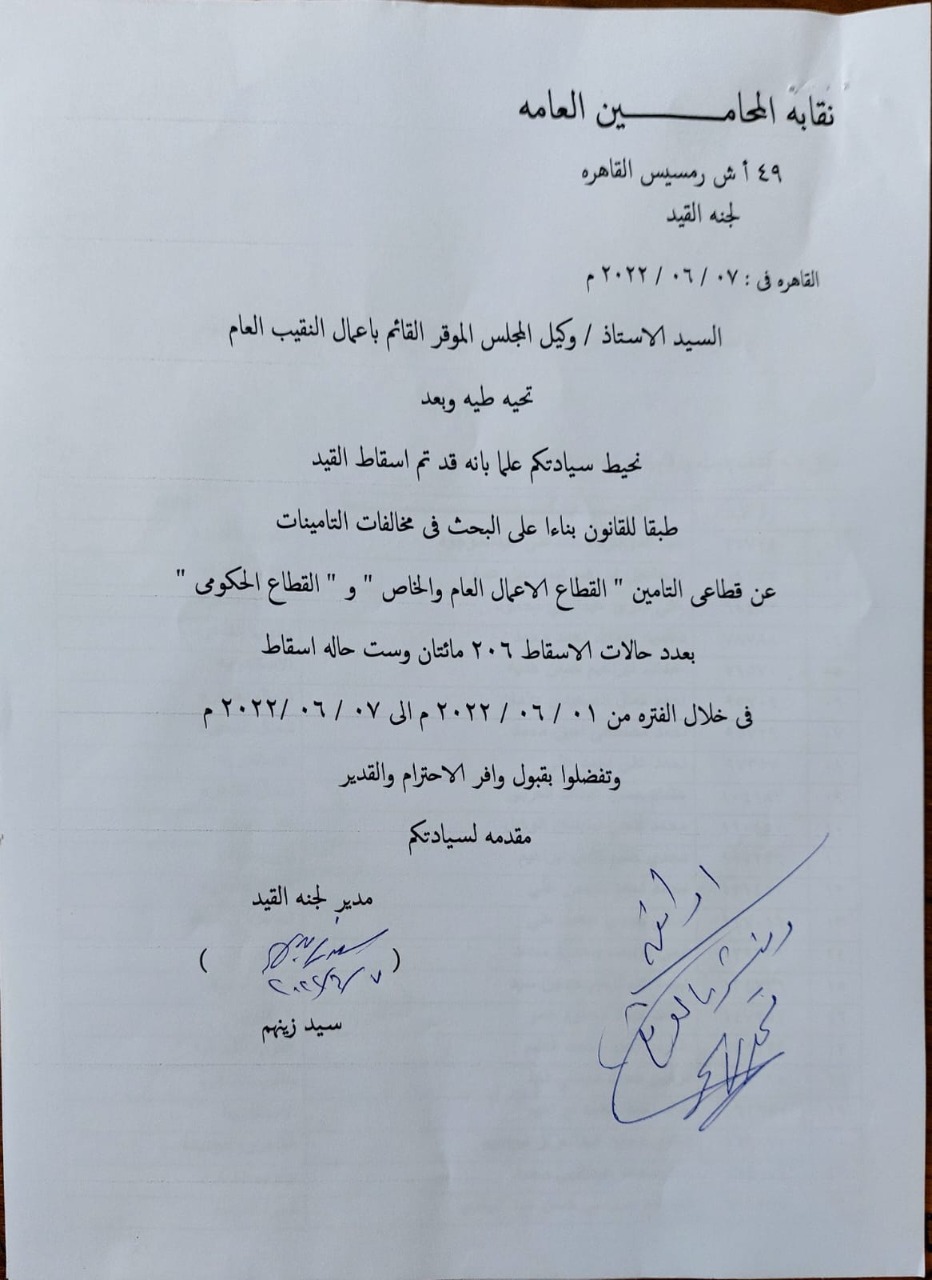 نقابه المحامـــــــــين العامه
٤٩ أ ش رمسيس القاهره
لجنه القيد
القاهره فى : ٠٧ / ٠٦ / ٢٠٢٢ م
السيد الاستاذ / وكيل المجلس الموقر القائم باعمال النقيب العام
تحيه طيه وبعد
نحيط سيادتكم علما بانه قد تم اسقاط القيد
طبقا للقانون بناءا على البحث فى مخالفات التامينات
عن قطاعى التامين " القطاع الاعمال العام والخاص " و " القطاع الحكومى "
بعدد حالات الاسقاط ٢٠٦ مائتان وست حاله اسقاط
فى خلال الفتره من ٠١ / ٠٦ / ٢٠٢٢ م الى ٠٧ / ٠٦ /٢٠٢٢ م
وتفضلوا بقبول وافر الاحترام والقدير
مقدمه لسيادتكم
مدير لجنه القيد
( )
٢٠٢٢/٦/٧
سيد زينهم
اوافق
وينشر بالموقع